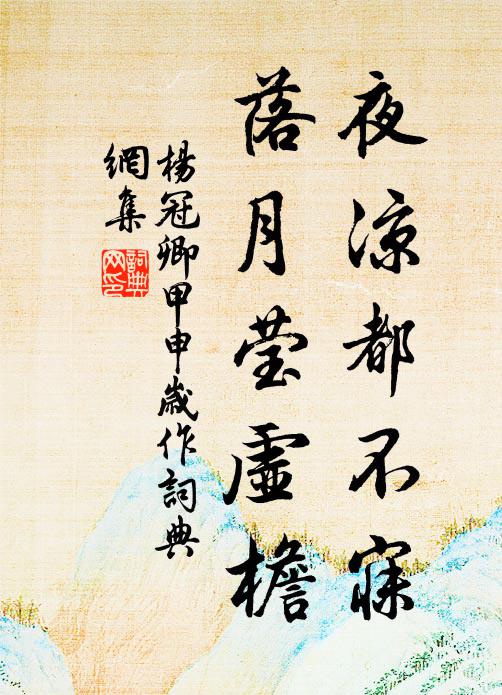 夜凉都不寐
落月莹虚檐
楊冠卿甲申歲作詞典
網集
詞典
网印